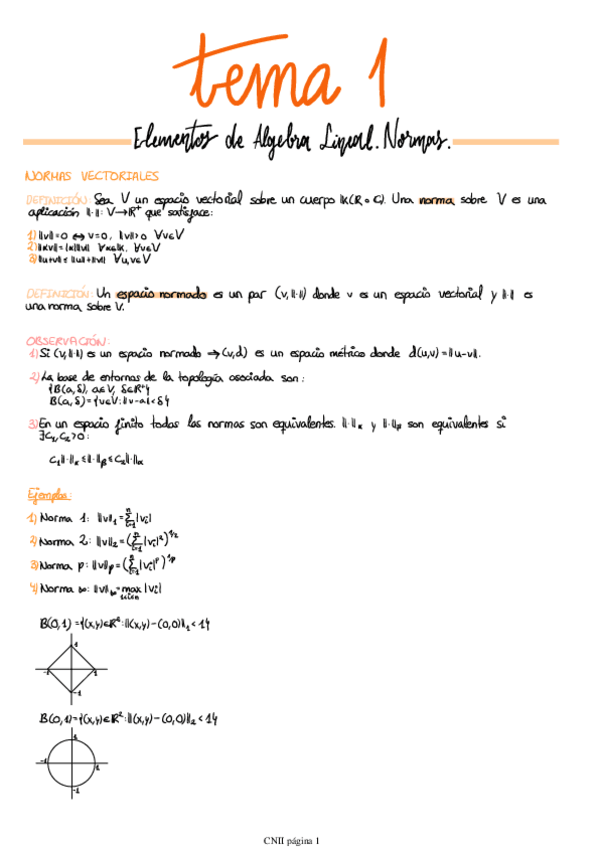 tema 1
Elementos de Algebra Lineal. Normas.
NORMAS VECTORIALES
DEFINICIÓN: Sea V un espacio vectorial sobre un cuerpo IK(R o C). Una norma sobre V es una
aplicación ||·||: V→R⁺ que satisface:
1) ||v||=0 ⇔ v=0, ||v||>0 ∀v∈V
2) ||αv||=|α|||v|| ∀α∈IK, ∀v∈V
3) ||u+v||≤||u||+||v|| ∀u,v∈V
DEFINICIÓN: Un espacio normado es un par (V,||·||) donde v es un espacio vectorial y ||·|| es
una norma sobre V.
OBSERVACIÓN:
1) Si (V,||·||) es un espacio normado → (V,d) es un espacio métrico donde d(u,v)=||u-v||.
2) La base de entornos de la topología asociada son:
{B(a,δ), a∈V, δ∈R⁺}
B(a,δ)={v∈V:||v-a||<δ}
3) En un espacio finito todas las normas son equivalentes. ||·||α y ||·||β son equivalentes si
∃C₁,C₂>0:
C₁||·||α≤||·||β≤C₂||·||α
Ejemplos:
1) Norma 1: ||v||₁=∑ⁿᵢ₌₁|vᵢ|
2) Norma 2: ||v||₂=(∑ⁿᵢ₌₁|vᵢ|²)^1/2
3) Norma p: ||v||p=(∑ⁿᵢ₌₁|vᵢ|ᵖ)^1/p
4) Norma ∞: ||v||∞=max 1≤i≤n |vᵢ|
B(0,1)={(x,y)∈R²:||(x,y)-(0,0)||₁<1}
1
-1 1
-1
B(0,1)={(x,y)∈R²:||(x,y)-(0,0)||₂<1}
1
-1 1
-1
CNII página 1